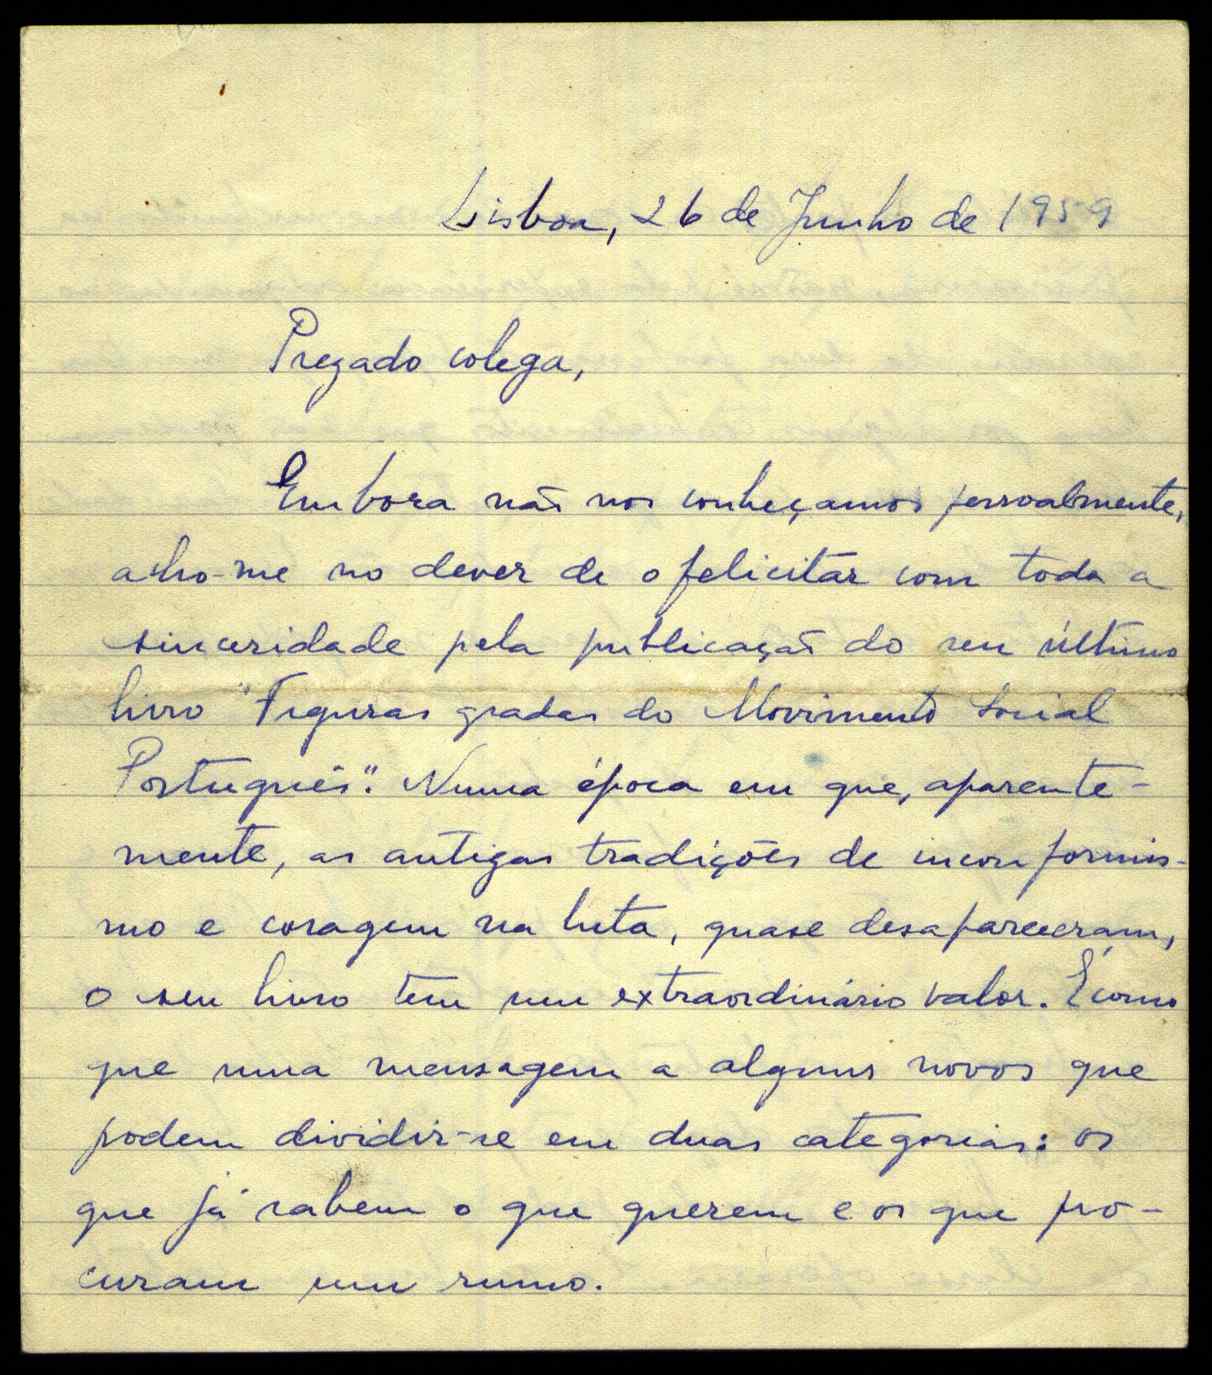 Lisboa, 26 de Junho de 1959
Prezado colega,
Embora não nos conheçamos pessoalmente,
acho-me no dever de o felicitar com toda a
sinceridade pela publicação do seu último
livro "Figuras gradas do Movimento Social
Português". Numa época em que, aparente-
mente, as antigas tradições de inconformis-
mo e coragem na luta, quase desapareceram,
o seu livro tem um extraordinário valor. É como
que uma mensagem a alguns novos que
podem dividir-se em duas categorias: os
que já sabem o que querem e os que pro-
curam um rumo.